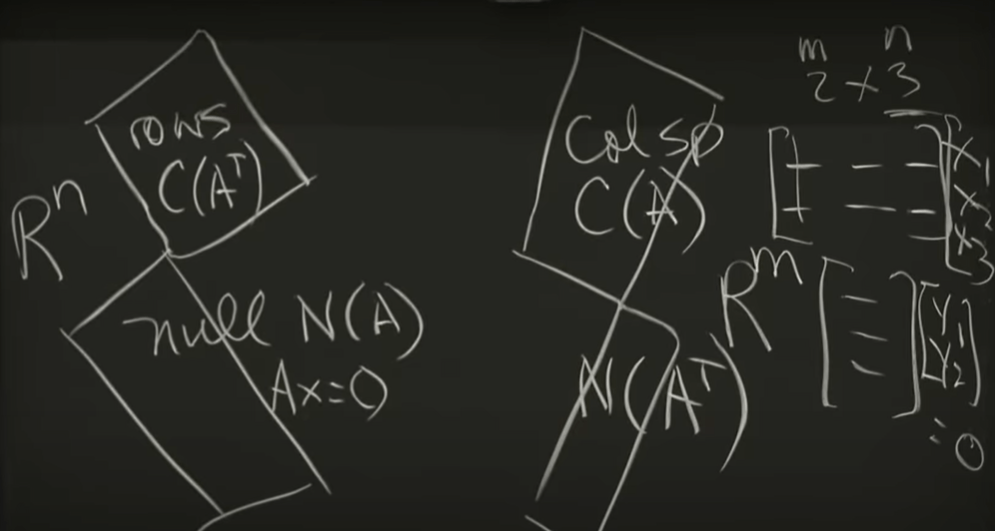 rows
C(Aᵀ)
Rⁿ
null N(A)
Ax=0
Col sp
C(A)
Rᵐ
N(Aᵀ)
m n
2 × 3
x₁
x₂
x₃
y₁
y₂
= 0